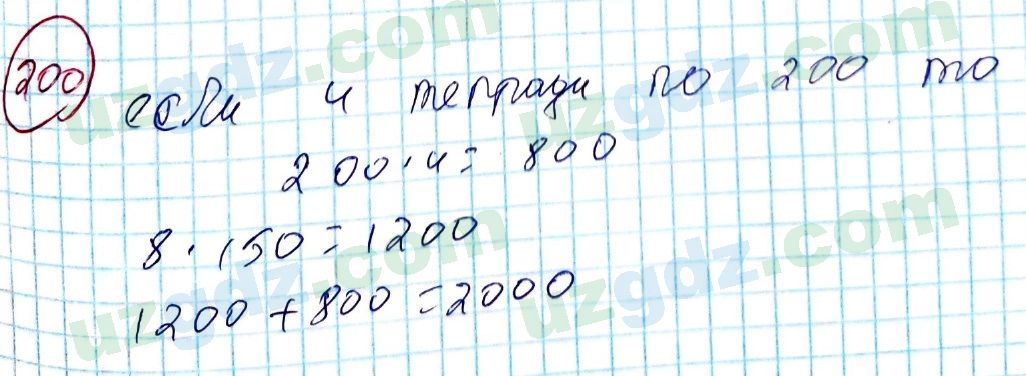 200
если 4 тетради по 200 то
200 · 4 = 800
8 · 150 = 1200
1200 + 800 = 2000
uzgdz.com
uzgdz.com
uzgdz.com
uzgdz.com